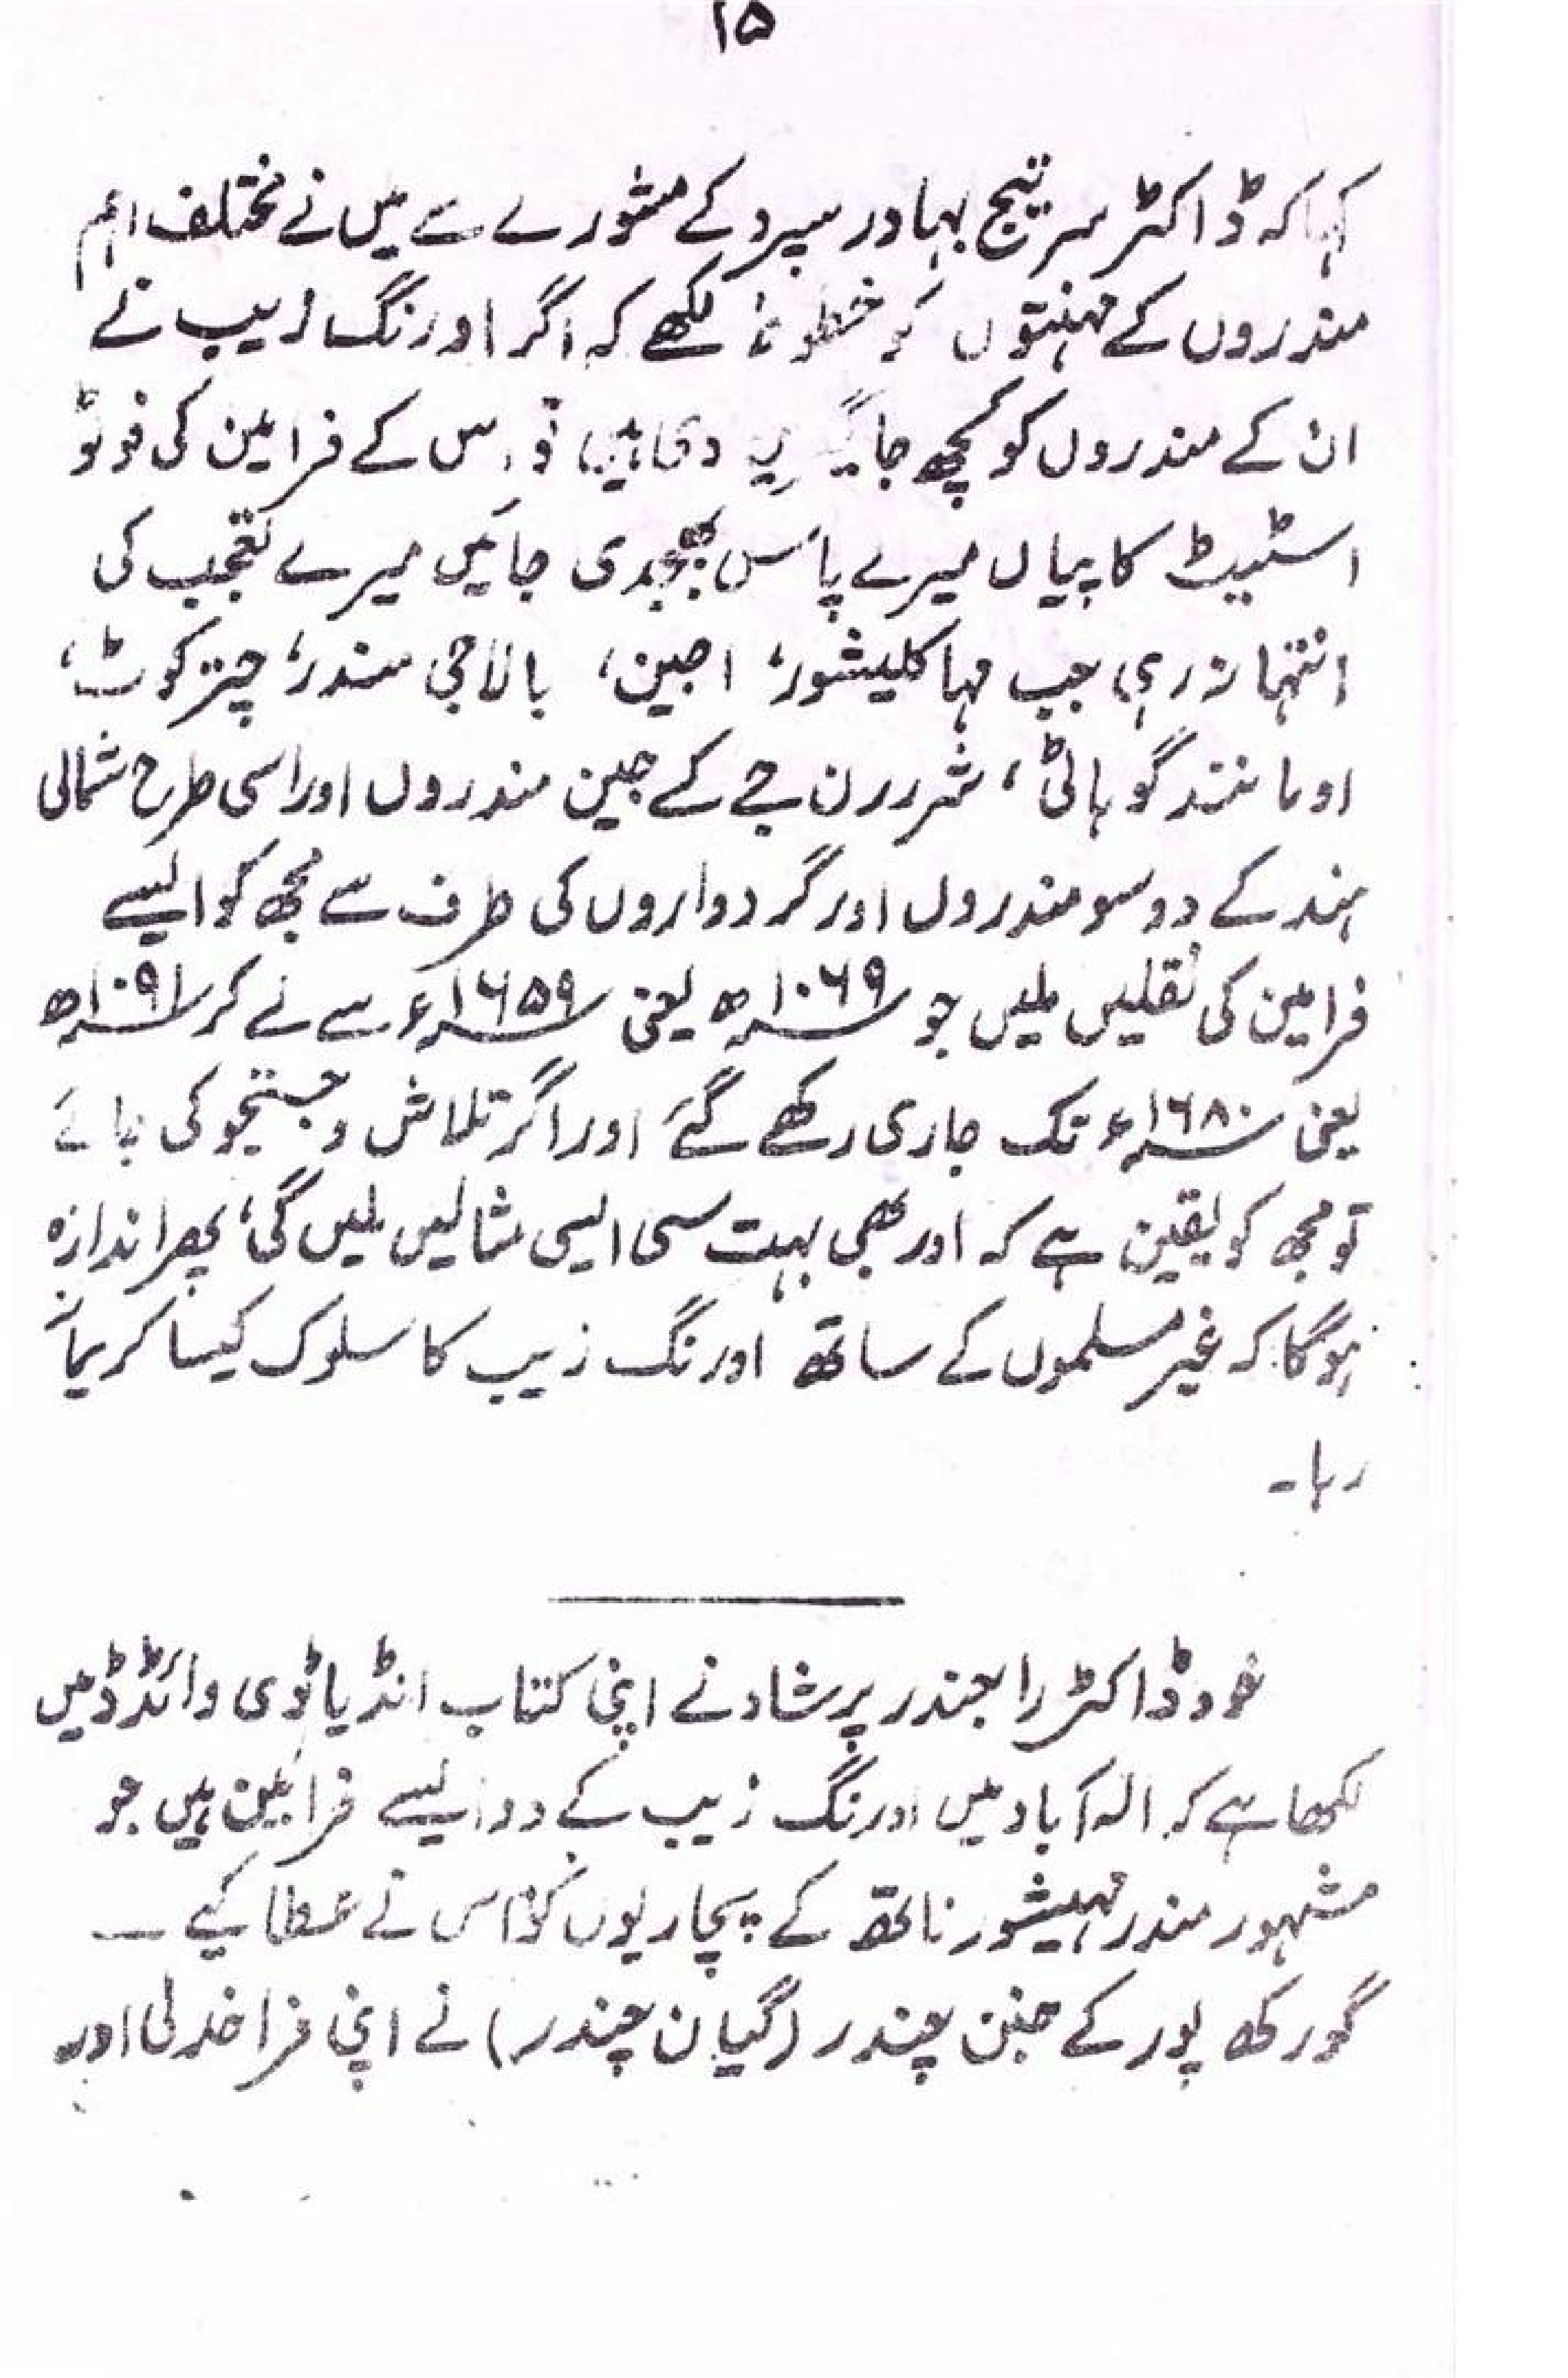 ۱۵
کہا کہ ڈاکٹر سر تیج بہادر سپرو کے مشورے سے میں نے مختلف اہم
مندروں کے مہنتوں کو خطوط لکھے کہ اگر اورنگ زیب نے
ان کے مندروں کو کچھ جاگیریں دی ہیں تو اس کے فرامین کی فوٹو
اسٹیٹ کاپیاں میرے پاس بھیجدی جائیں میرے تعجب کی
انتہا نہ رہی جب مہا کلیشور، اجین، بالاجی مندر، چترکوٹ،
اوما نند گوہاٹی، شرر رن جے کے جین مندروں اور اسی طرح شمالی
ہند کے دو سو مندروں اور گردواروں کی طرف سے مجھ کو ایسے
فرامین کی نقلیں ملیں جو ۱۰۶۹ھ یعنی ۱۶۵۹ء سے لے کر ۱۰۹۱ھ
یعنی ۱۶۸۰ء تک جاری رکھے گئے اور اگر تلاش و جستجو کی جائے
تو مجھ کو یقین ہے کہ اور بھی بہت سی ایسی مثالیں ملیں گی، پھر اندازہ
ہوگا کہ غیر مسلموں کے ساتھ اورنگ زیب کا سلوک کیسا کریمانہ
رہا۔
خود ڈاکٹر راجندر پرشاد نے اپنی کتاب انڈیا ڈی وائڈڈ میں
لکھا ہے کہ الہ آباد میں اورنگ زیب کے دو ایسے فرامین ہیں جو
مشہور مندر مہیشور ناتھ کے پجاریوں کو اس نے عطا کیے ۔
گورکھ پور کے جنن چندر (گیان چندر) نے اپنی فراخدلی اور